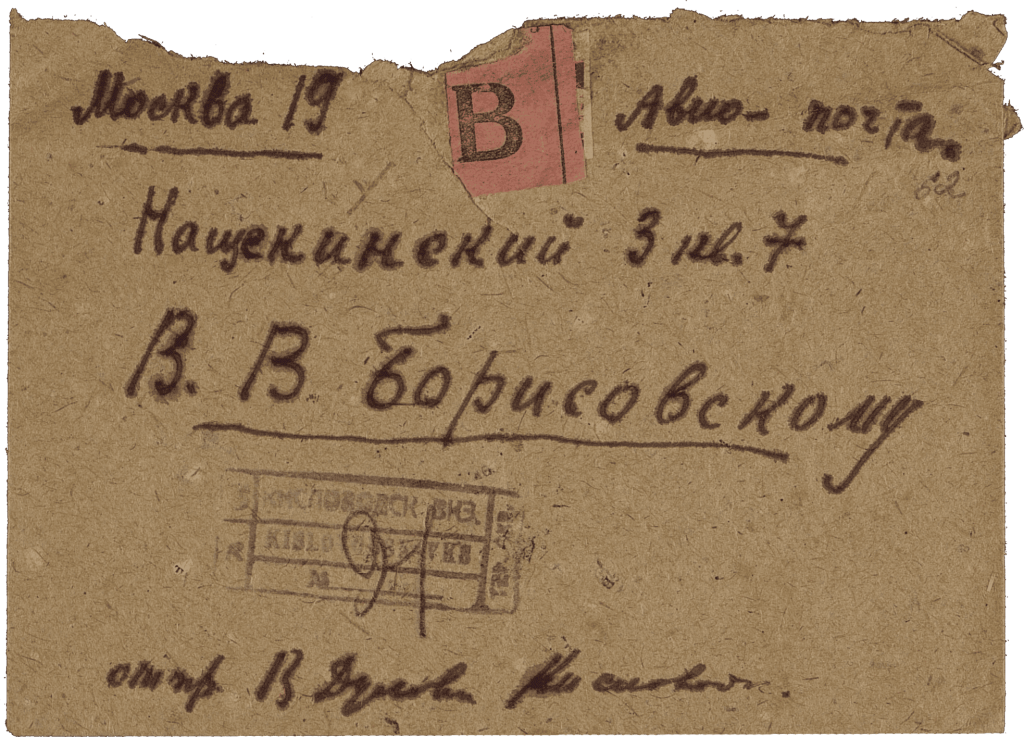 Москва 19
В
Авио- почта
62
Нащекинский 3 кв. 7
В. В Борисовскому
КИСЛОВОДСК ВКЗ.
№
91
отпр. В Дулова Кисловодск.